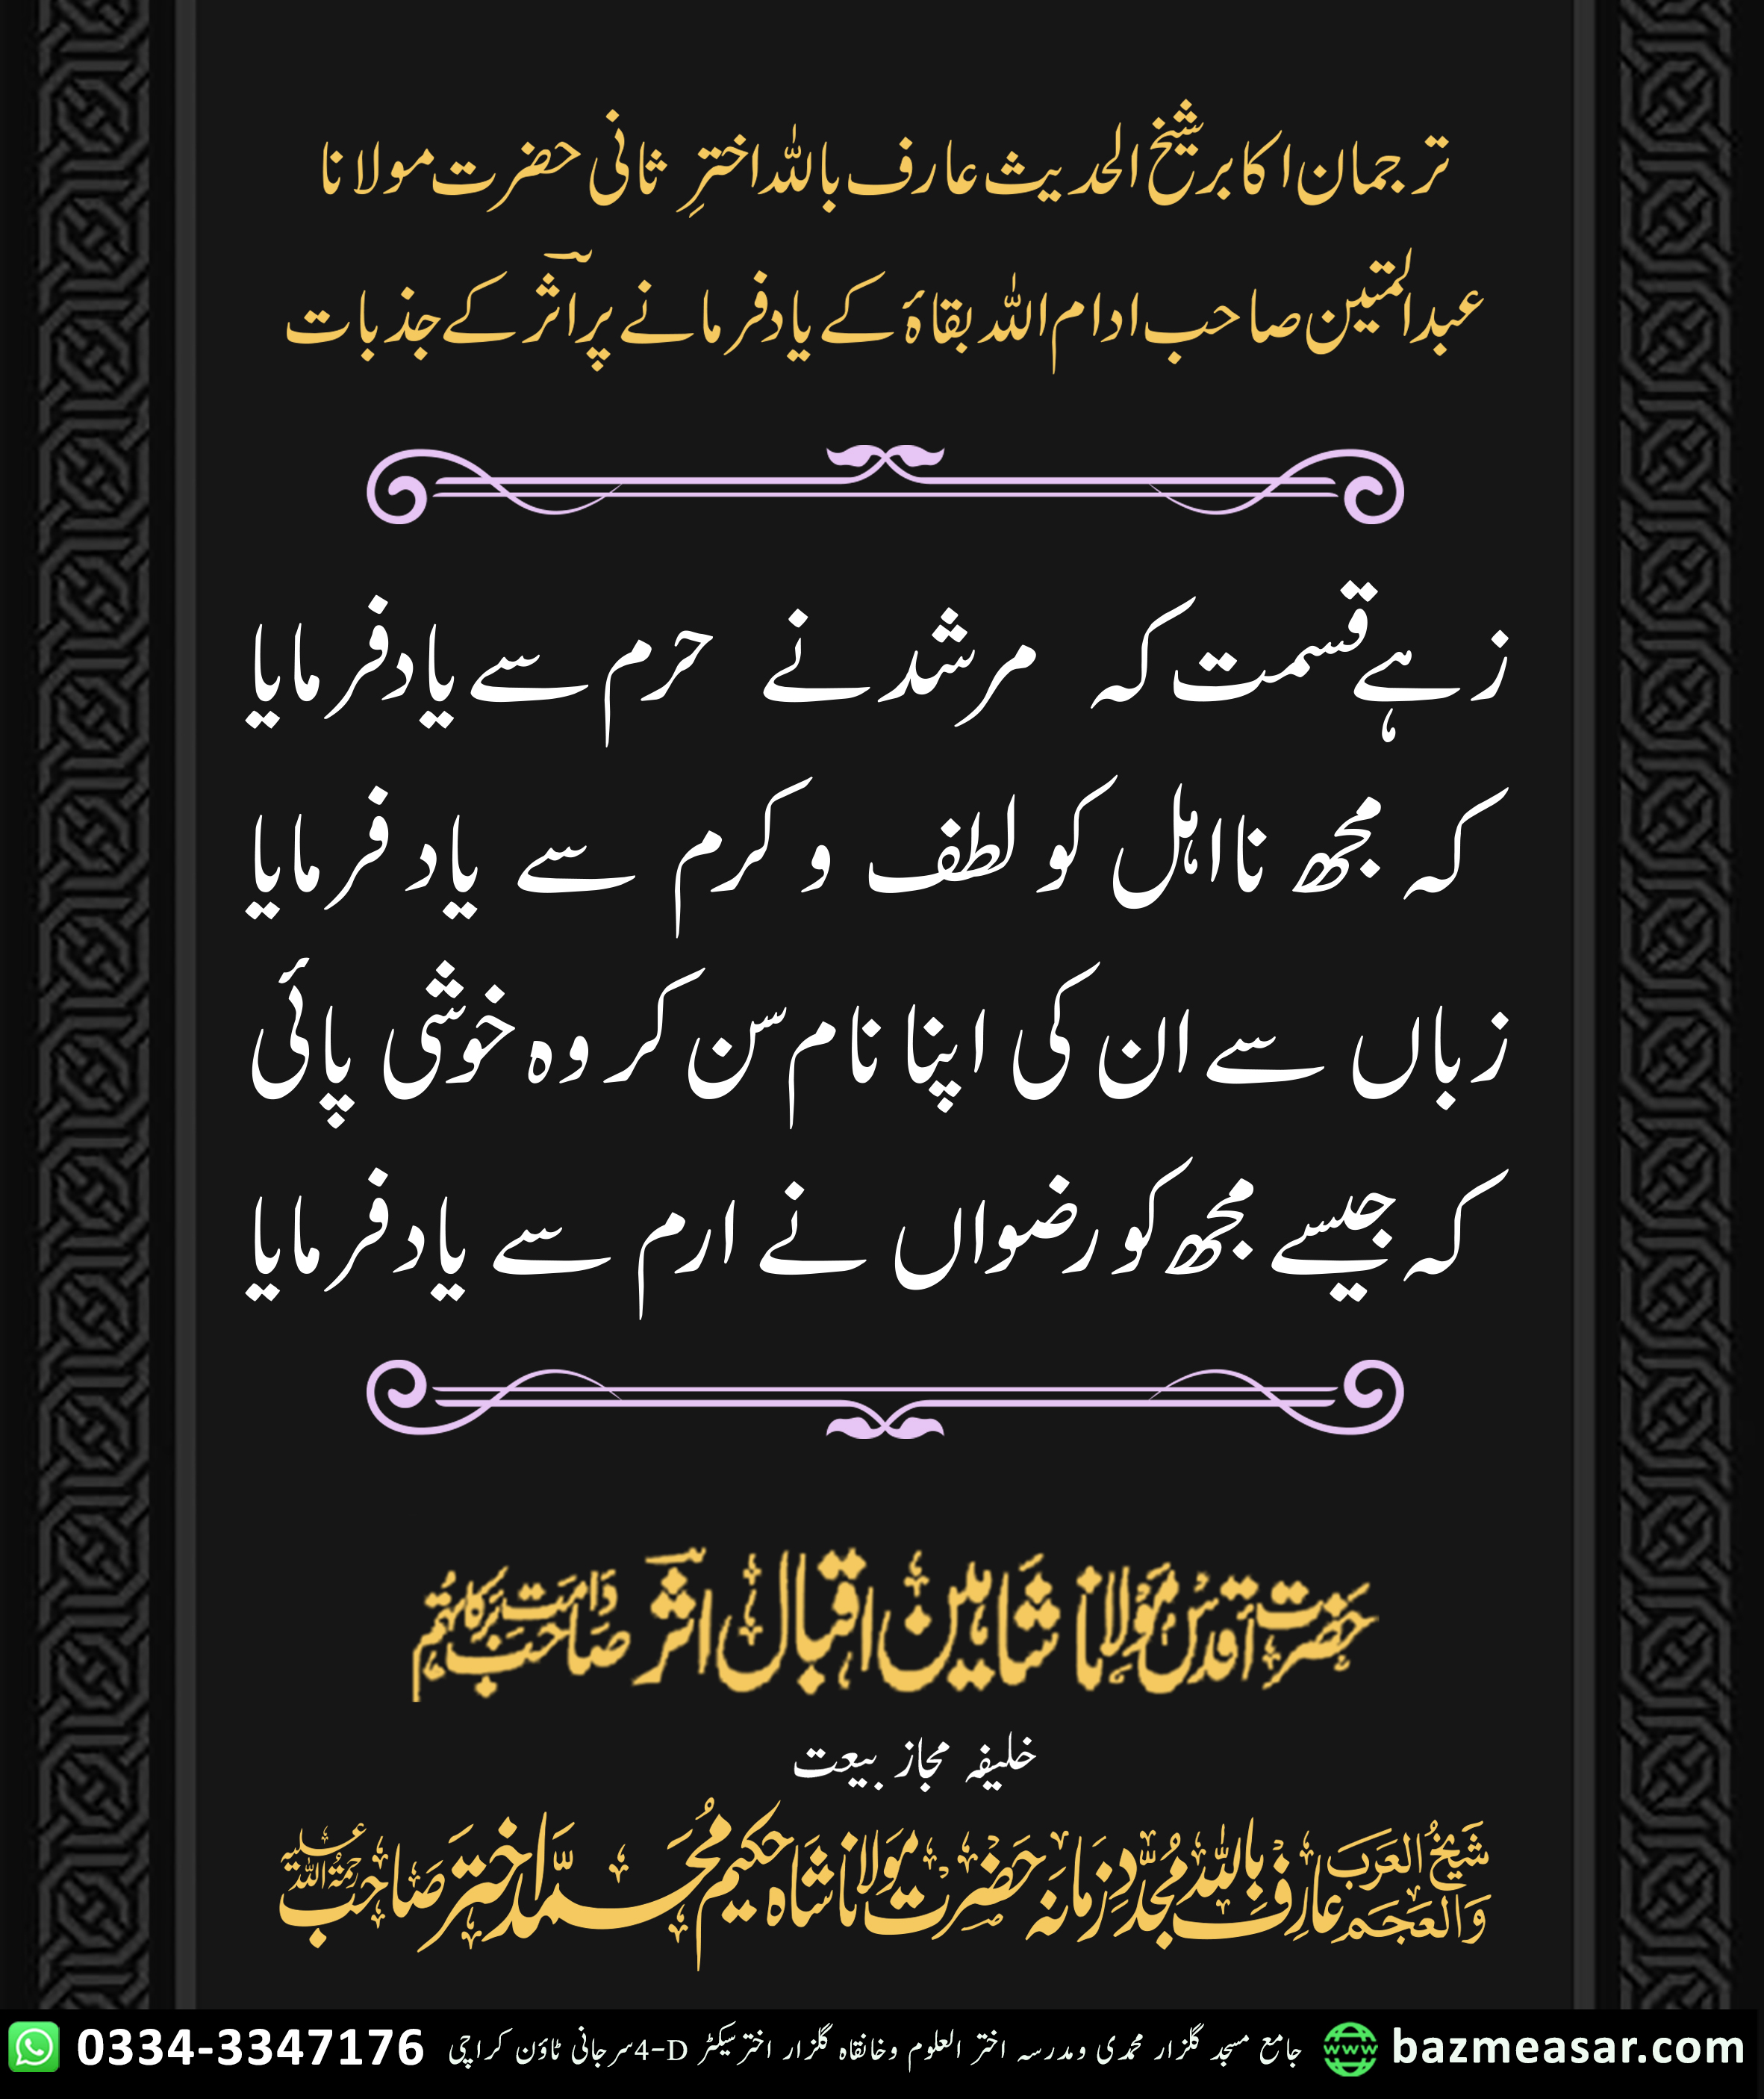 ترجمان اکابر شیخ الحدیث عارف باللہ اخترِ ثانی حضرت مولانا
عبدالمتین صاحب ادام اللہ بقاۂ کے یاد فرمانے پر اثرؔ کے جذبات
زہے قسمت کہ مرشد نے حرم سے یاد فرمایا
کہ مجھ نااہل کو لطف و کرم سے یاد فرمایا
زباں سے ان کی اپنا نام سن کر وہ خوشی پائی
کہ جیسے مجھ کو رضواں نے ارم سے یاد فرمایا
حضرت اقدس مولانا شاہین اقبال اثرؔ صاحب دامت برکاتہم
خلیفہ مجاز بیعت
شیخ العرب والعجم عارف باللہ مجدد زمانہ حضرت مولانا شاہ حکیم محمد اختر صاحب رحمۃ اللہ علیہ
0334-3347176 جامع مسجد گلزار محمدی ومدرسہ اختر العلوم وخانقاہ گلزار اختر سیکٹر 4-D سرجانی ٹاؤن کراچی www bazmeasar.com